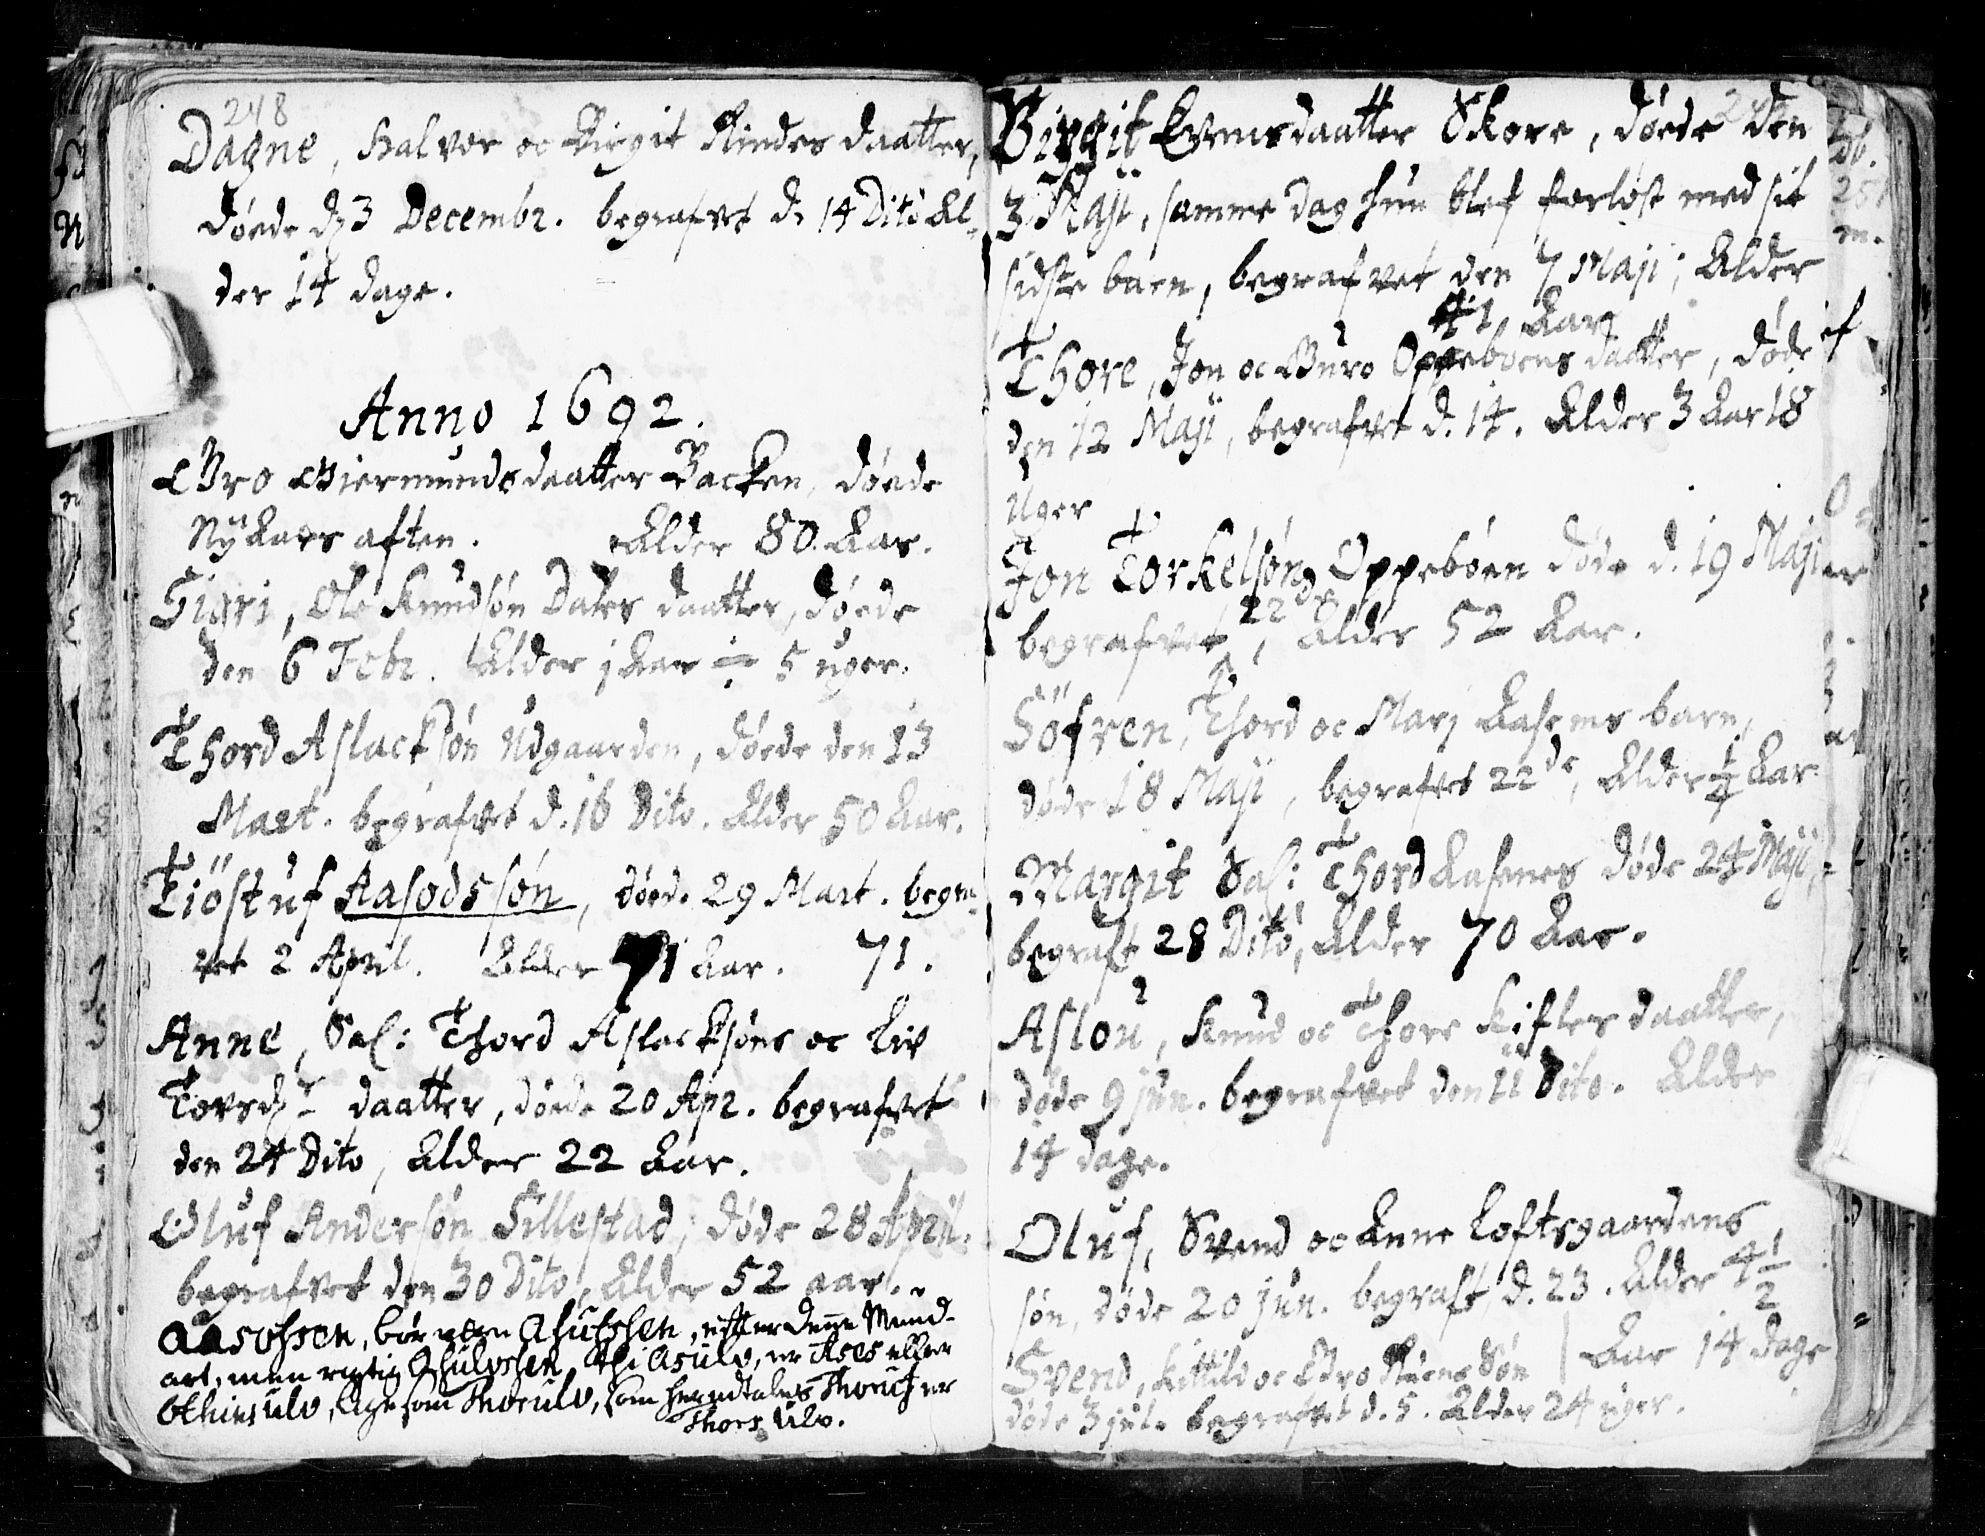 248
Dagne, Halvor oc Birgit Rindes daatter,
døede d. 3 Decembr. begrafvet d. 14 Dito Al-
der 14 dage.
Anno 1692.
Gro Giermundsdaatter Backen, døede
Nÿ Aars aften. Alder 80. Aar.
Sigri, Ole Knudsøn Dales daatter, døede
den 6 Febr. Alder 1 Aar 5 uger.
Thord Aslacksøn Udgaarden, døede den 13
Mart. begrafvet d. 16 Dito. Alder 50 Aar.
Tiöstuf Aasodssøn, døede 29 Mart. begra-
vet 2 April. Alder 71 Aar. 71.
Anne, Sal: Thord Aslacksøns oc Liv
Torsd. daatter, døede 20 Apr. begrafvet
den 24 Dito, Alder 22 Aar.
Oluf Andersøn Sillestad, døde 28 April.
begrafvet den 30 Dito, Alder 52 aar.
Aasossen, bør være Asulssen, efter denne Mund-
art, men rigtig Asulvssen, thi Asulv, er Ases eller
Othins ulv, lige som Thorulv, som her udtales Thoruf er
Thors Ulv.
Birgit Evensdaatter Skore, døede den
3 Maji, samme dag hun blef forløst med sit
sidste barn, begrafvet den 7 Maji; Alder
41 Aar
Thore, Jon oc Guro Oppeboens daatter, døde
den 12 Maji, begrafvet d. 14. Alder 3 Aar 18
Uger
Jon Torkelsøn Oppebøen døde d. 19 Maji
begrafvet 22de, Alder 52 Aar.
Söfren, Thord oc Mari Aasens barn,
døde 18 Maji, begrafvet 22de, Alder 1/4 Aar.
Margit Sal: Thord Aasenes døde 24 Maji,
begraft 28 Dito, Alder 70 Aar.
Aslou, Knud oc Thore Kifles daatter,
døde 9 jun. begrafvet den 11 Dito. Alder
14 dage.
Oluf, Svend oc Anne Loftsgaardens
søn, døde 20 jun. begraft d. 23. Alder 4 1/2
Aar 14 dage
Svend, Kittild oc Gro Ruens Søn
døde 3 jul. begrafvet d. 5. Alder 24 uger.